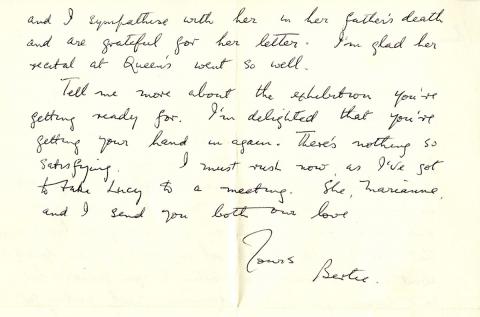 and I sympathise with her in her father's death
and are grateful for her letter. I'm glad her
recital at Queen's went so well.
Tell me more about the exhibition you're
getting ready for. I'm delighted that you're
getting your hand in again. There's nothing so
satisfying. I must rush now, as I've got
to take Lucy to a meeting. She, Marianne,
and I send you both our love
Yours
Bertie.